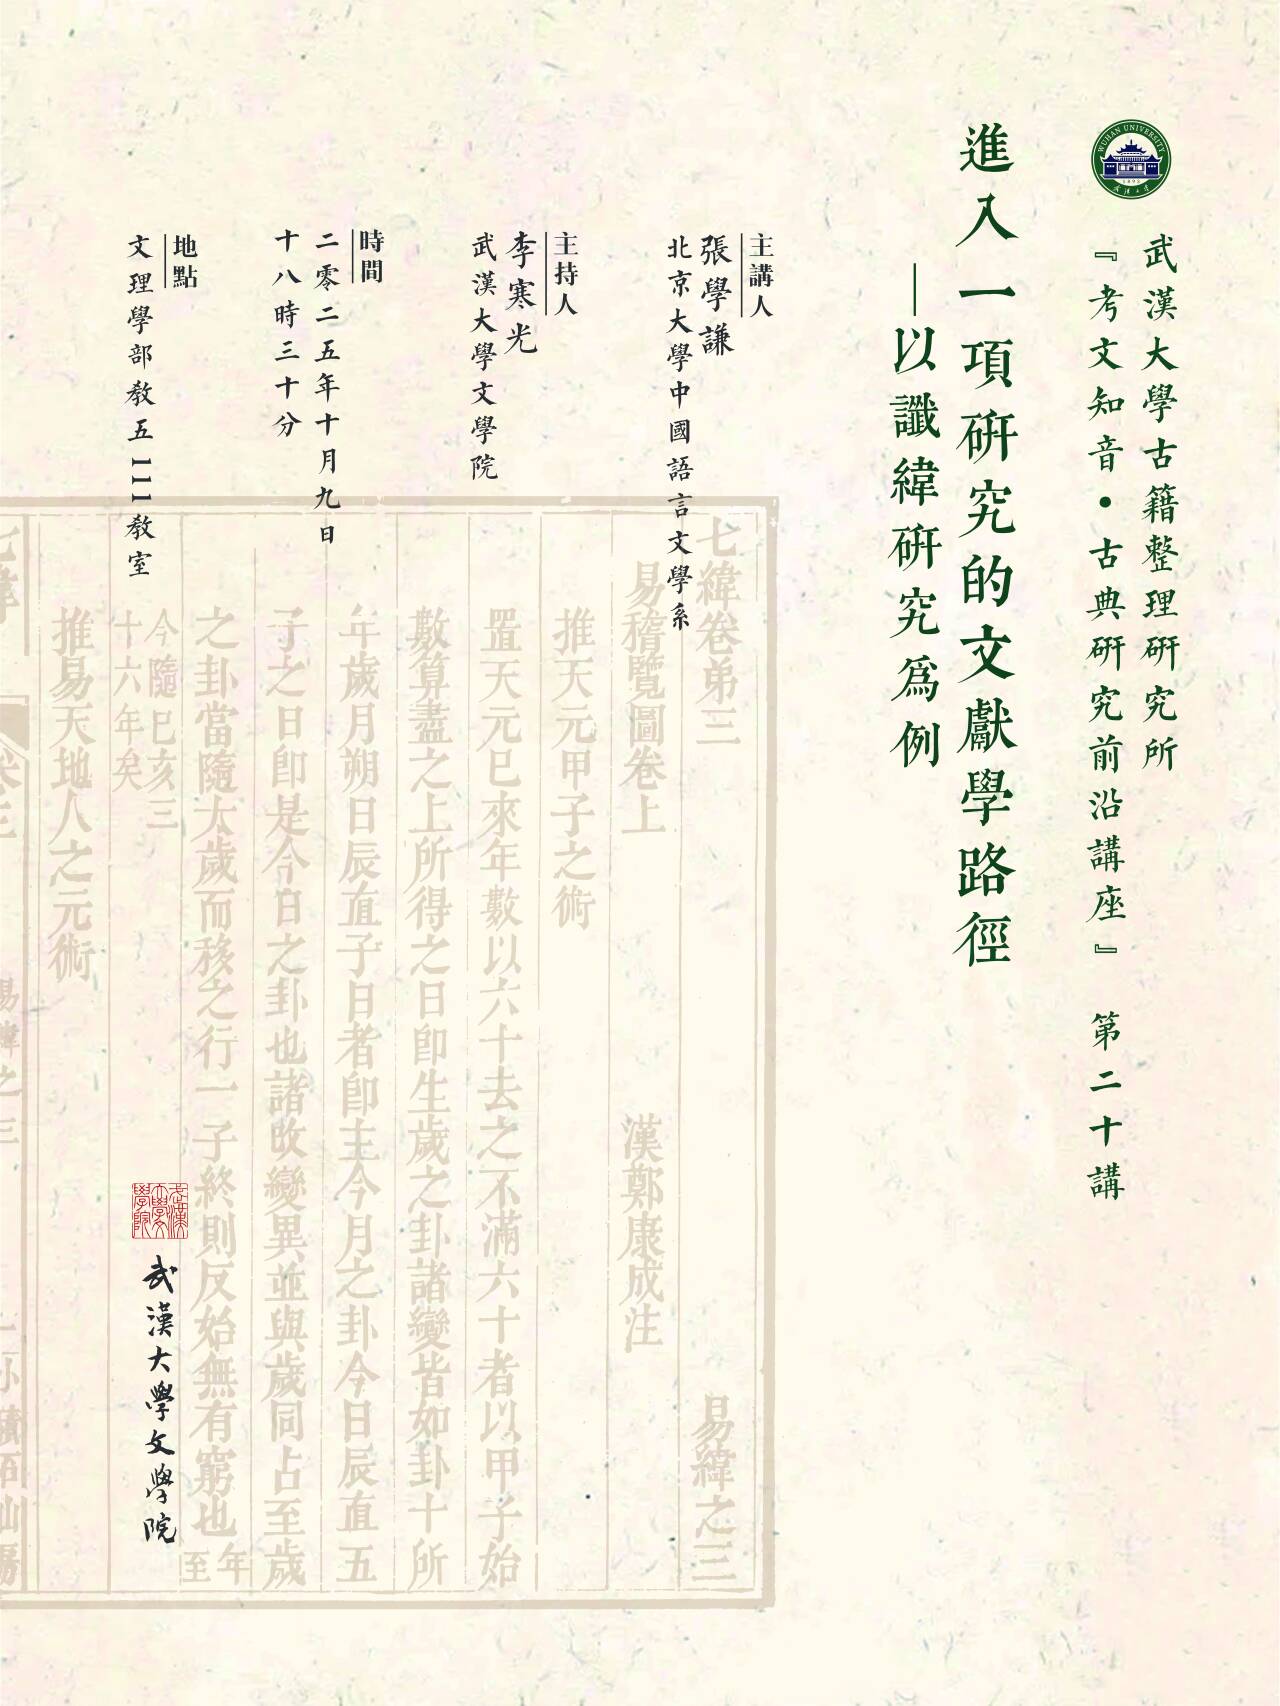 WUHAN UNIVERSITY
1893
武漢大學
武漢大學古籍整理研究所
『考文知音·古典研究前沿講座』 第二十講
進入一項研究的文獻學路徑
—以讖緯研究爲例
主講人
張學謙
北京大學中國語言文學系
主持人
李寒光
武漢大學文學院
時間
二零二五年十月九日
十八時三十分
地點
文理學部教五111教室
七緯卷弟三 易緯之三
易稽覽圖卷上 漢鄭康成注
推天元甲子之術
置天元巳來年數以六十去之不滿六十者以甲子始
數算盡之上所得之日卽生歲之卦諸變皆如卦十所
年歲月朔日辰直子日者卽主今月之卦今日辰直五
子之日卽是今日之卦也諸政變異並與歲同占至歲
之卦當隨太歲而移之行一子終則反始無有窮也
年至
今隨巳亥三
十六年矣
推易天地人之元術
易緯之三
武漢大學文學院
武漢大學文學院